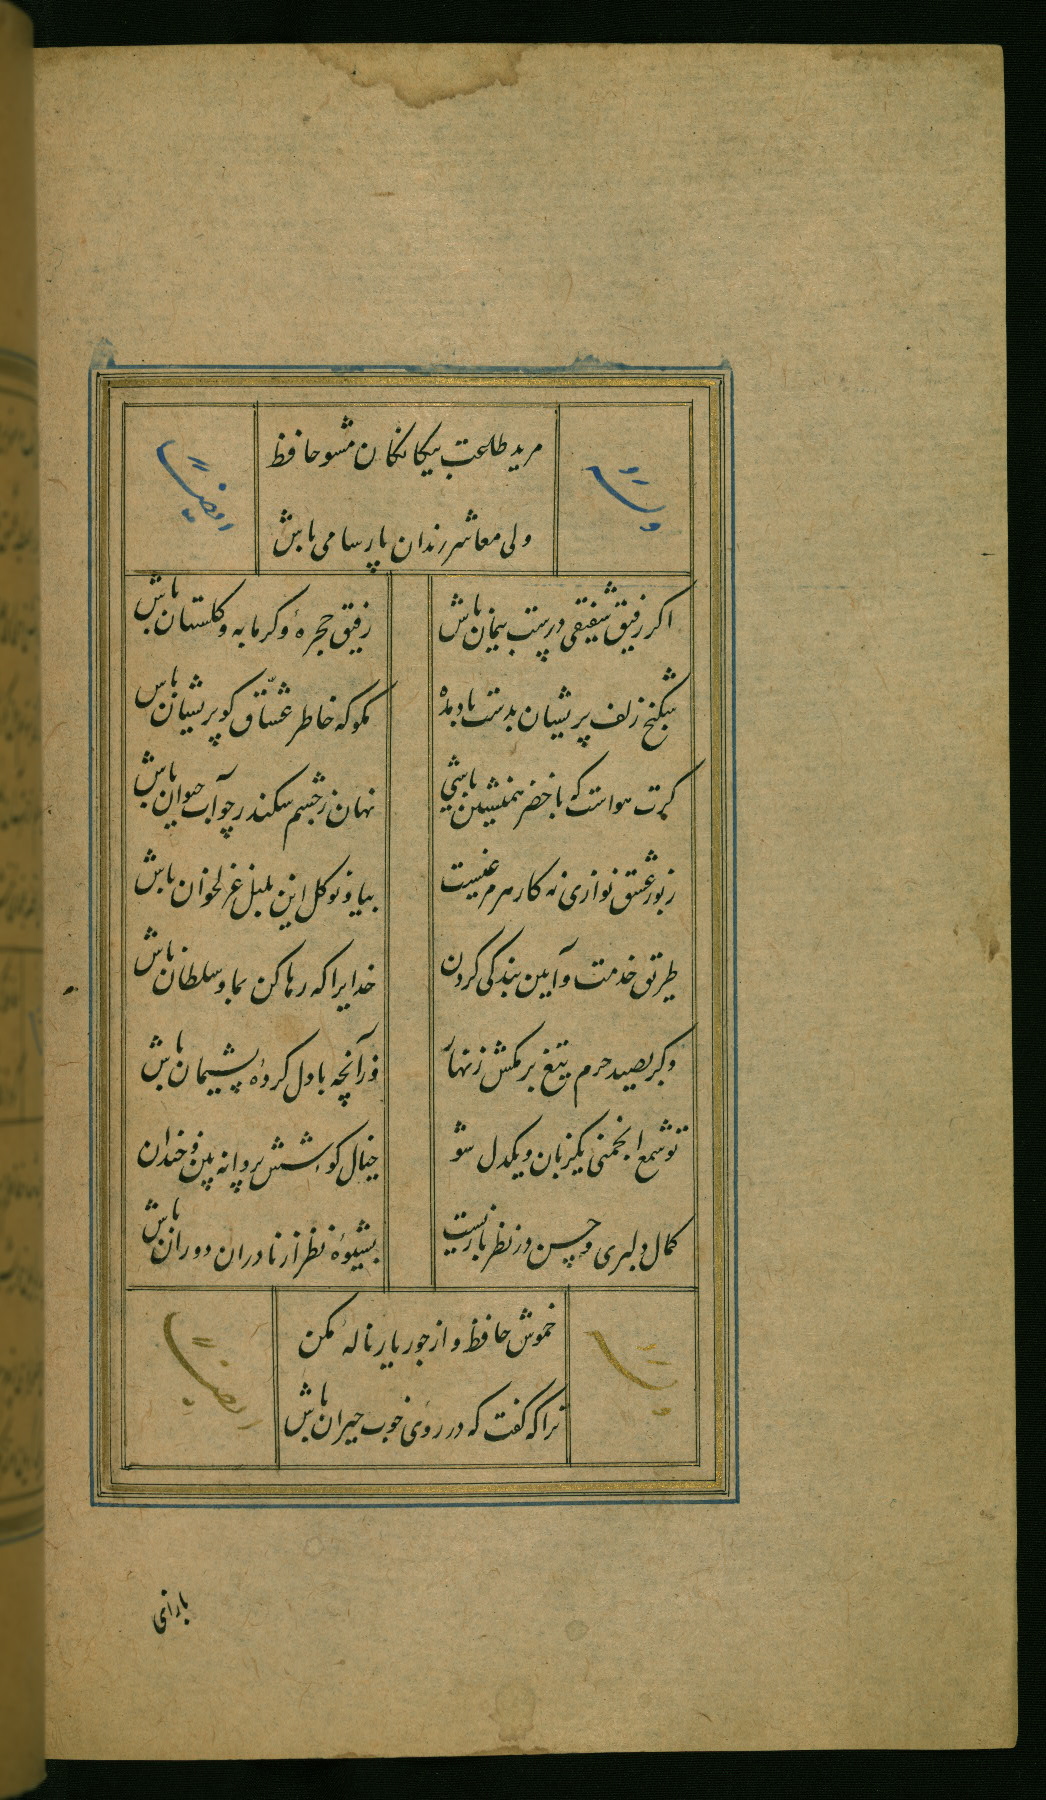 مرید طاعت بیکانکان مشو حافظ
ولی معاشر رندان پارسا می باش
وله
ایضا
اکر رفیق شفیقی درست پیمان باش
رفیق حجرهٔ و کرمابه و کلستان باش
شکنج زلف پریشان بدست باد مده
مکو که خاطر عشّاق کو پریشان باش
کرت هواست که با خضر همنشین باشی
نهان ز چشم سکندر چو آب حیوان باش
زبور عشق نوازی نه کار هر مرغیست
بیا و نوکل این بلبل غزلخوان باش
طریق خدمت و آیین بندکی کردن
خدایرا که رها کن بما و سلطان باش
وکر بصید حرم تیغ برمکش زنهار
وز آنچه با دل کردهٔ پشیمان باش
تو شمع انجمنی یکزبان و یکدل شو
خیال کوشش پروانه بین و خندان
کمال دلبری و حسن در نظر بازیست
بشیوهٔ نظر از نادران دوران باش
خموش حافظ و از جور یار ناله مکن
ترا که گفت که در روی خوب حیران باش
ایضا